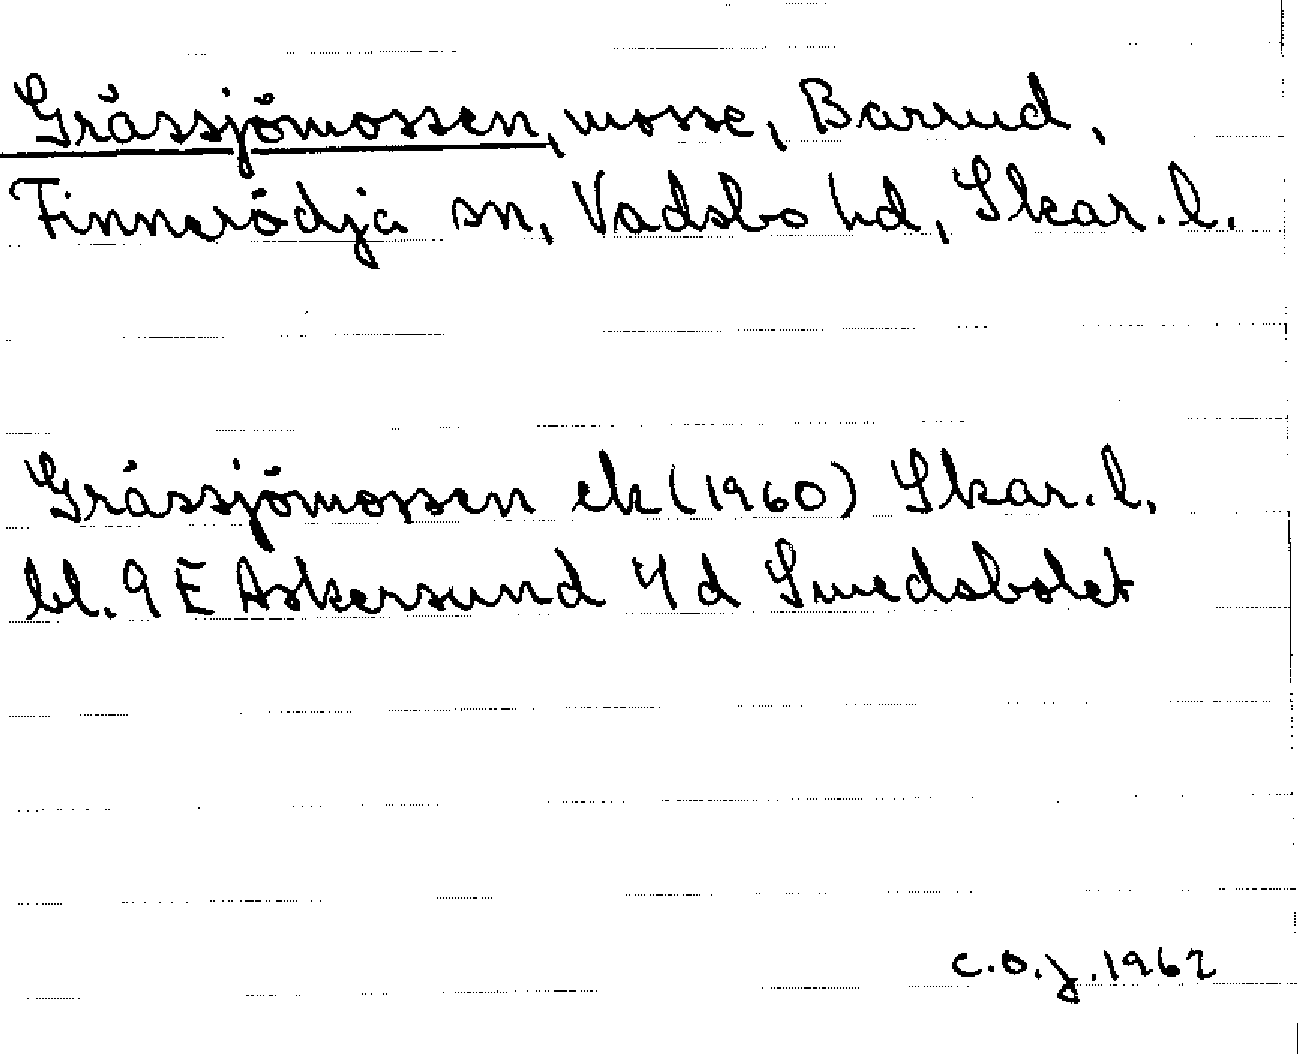 Gråssjömossen, mosse, Barrud,
Finnerödja sn, Vadsbo hd, Skar. l.
Gråssjömossen ek (1960) Skar. l.
bl. 9 E Askersund 4 d Smedsbolet
C.O.J. 1962